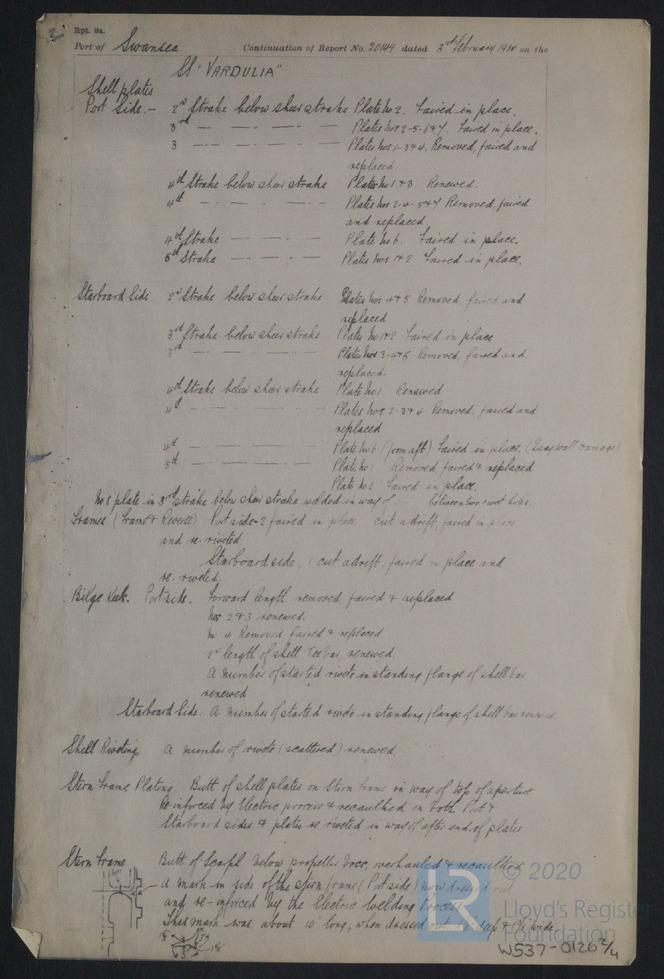 Rpt. 9a.
Port of Swansea Continuation of Report No. 20149 dated 3rd February 1914 on the
SS "VARDULIA"
Shell plates
Port Side. - 2nd Strake below sheer strake Plate No 2. Faired in place.
3rd — Plates Nos 2-5-6&7. Faired in place.
3 — Plates Nos 1-3&4. Removed, faired and
replaced
4th Strake below sheer strake Plates No 1&3. Renewed.
4th — Plates Nos 2-4-5&7 Removed, faired
and replaced
4th Strake — Plate No 6. Faired in place.
5th Strake — Plates Nos 1&2 Faired in place.
Starboard Side 2nd Strake below sheer strake Plates Nos 4&5 Removed faired and
replaced
3rd Strake below sheer strake Plates No 1&2 Faired in place
3rd — Plates Nos 3-4&5 Removed, faired and
replaced.
4th Strake below sheer strake Plate No 1 Renewed
4th — Plates Nos 2-3&4 Removed, faired and
replaced
4th — Plate No 6 (from aft) Faired in place, (Quay wall damage)
5th — Plate No 1 Removed, faired & replaced
Plate No 2 Faired in place.
No 8 plate in 3rd strake below sheer strake welded in way of between two rivet holes.
Frames (Frame & Reverse) Port side - 2 faired in place, cut adrift, faired in place
and re-riveted
Starboard side, 1 cut adrift, faired in place and
re-riveted.
Bilge Keel. Port side. Forward length removed, faired & replaced
Nos 2&3 renewed.
No 4 Removed faired & replaced
2nd length of shell Tee bar renewed
A number of started rivets in standing flange of shell bar
renewed
Starboard Side. A number of started rivets in standing flange of shell bar renewed
Shell Riveting A number of rivets (scattered) renewed.
Stern Frame Plating Butt of shell plates on Stern frame in way of top of aperture
Re-inforced by Electric process & recaulked on both Port &
Starboard sides & plates re riveted in way of after ends of plates
Stern Frame Butt of Scarph below propeller boss overhauled & recaulked
A mark in side of the stern frame (Port side) now dressed out
and re-inforced by the Electric welding Process
This mark was about 10" long, when dressed out deep & wide
© 2020
LR
Lloyd's Register
Foundation
W537-0126 2/4